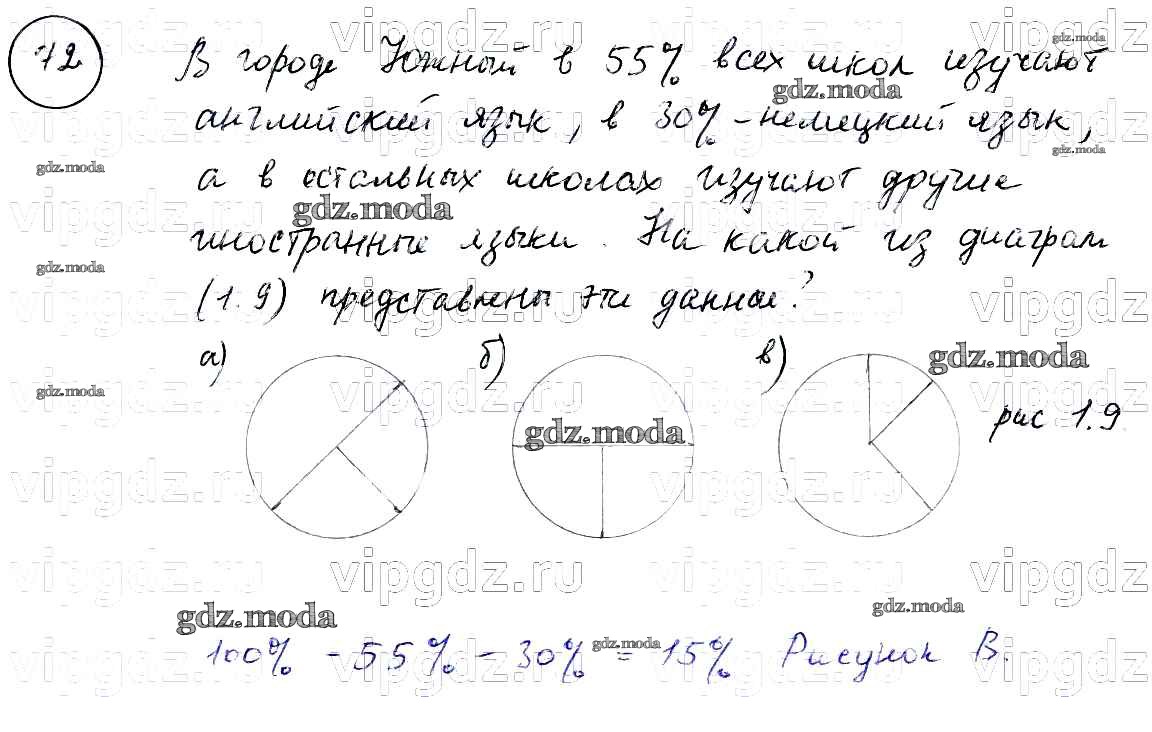 72
В городе Южный в 55% всех школ изучают
английский язык, в 30% - немецкий язык,
а в остальных школах изучают другие
иностранные языки. На какой из диаграм
(1.9) представлены эти данные?
а) б) в)
рис 1.9
100% - 55% - 30% = 15% Рисунок В.
gdz.moda
vipgdz.ru